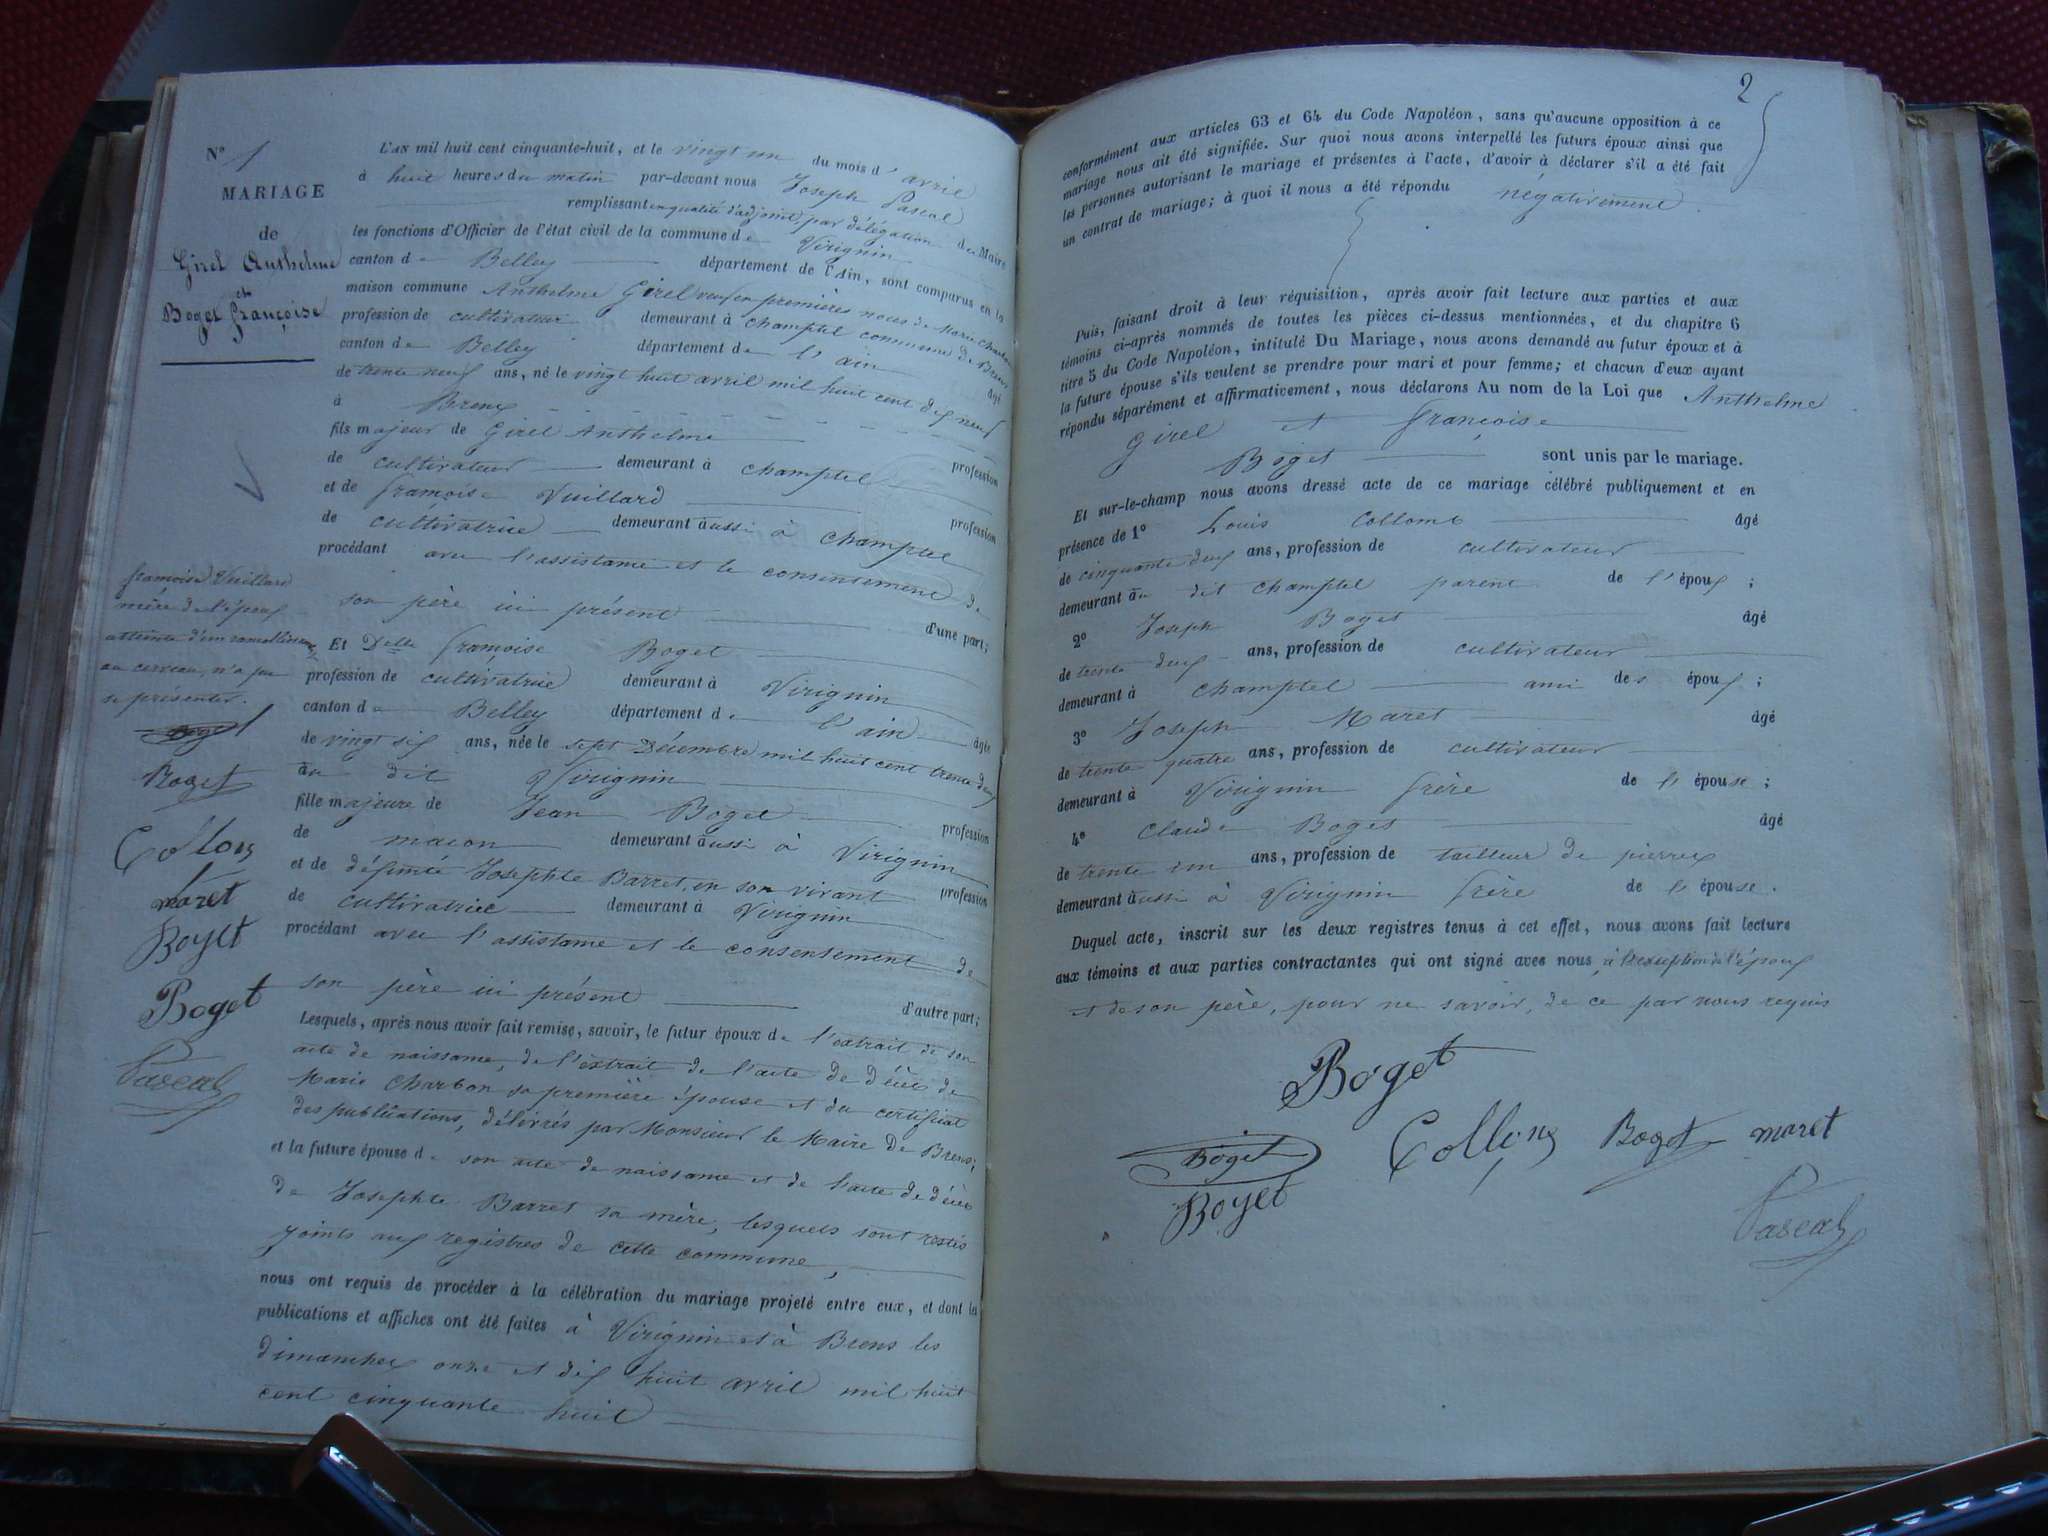 N° 1
MARIAGE
de
Girel Anthelme
et
Boget françoise
L'AN mil huit cent cinquante-huit, et le vingt un du mois d'avril
à huit heures du matin par-devant nous Joseph Pascal
remplissant en qualité d'adjoint par délégation du Maire
les fonctions d'Officier de l'état civil de la commune de Virignin
canton de Belley département de l'Ain, sont comparus en la
maison commune Anthelme Girel veuf en premières noces de Marie Charbon
profession de cultivateur demeurant à Champtel commune de Brens
canton de Belley département de l'ain âgé
de trente neuf ans, né le vingt huit avril mil huit cent dix neuf
à Brens
fils majeur de Girel Anthelme profession
de cultivateur demeurant à Champtel
et de françoise Vuillard profession
de cultivatrice demeurant aussi à Champtel
procédant avec l'assistance et le consentement de
son père ici présent d'une part;
françoise Vuillard
mère de l'époux
atteinte d'un ramollissement
au cerveau, n'a pu
se présenter.
Boget
Boget
Collomb
maret
Boget
Boget
Pascal
Et Delle françoise Boget
profession de cultivatrice demeurant à Virignin
canton de Belley département de l'ain âgée
de vingt six ans, née le sept Décembre mil huit cent trente deux
au dit Virignin
fille majeure de Jean Boget profession
de maçon demeurant aussi à Virignin
et de défunte Josephte Barret, en son vivant profession
de cultivatrice demeurant à Virignin
procédant avec l'assistance et le consentement de
son père ici présent d'autre part;
Lesquels, après nous avoir fait remise, savoir, le futur époux de l'extrait de son
acte de naissance, de l'extrait de l'acte de décès de
Marie Charbon sa première épouse et du certificat
des publications, délivrés par Monsieur le Maire de Brens;
et la future épouse de son acte de naissance et de l'acte de décès
de Josephte Barret sa mère, lesquels sont restés
joints aux registres de cette commune,
nous ont requis de procéder à la célébration du mariage projeté entre eux, et dont les
publications et affiches ont été faites à Virignin et à Brens les
dimanches onze et dix huit avril mil huit
cent cinquante huit
2
conformément aux articles 63 et 64 du Code Napoléon, sans qu'aucune opposition à ce
mariage nous ait été signifiée. Sur quoi nous avons interpellé les futurs époux ainsi que
les personnes autorisant le mariage et présentes à l'acte, d'avoir à déclarer s'il a été fait
un contrat de mariage; à quoi il nous a été répondu négativement.
Puis, faisant droit à leur réquisition, après avoir fait lecture aux parties et aux
témoins ci-après nommés de toutes les pièces ci-dessus mentionnées, et du chapitre 6
titre 5 du Code Napoléon, intitulé Du Mariage, nous avons demandé au futur époux et à
la future épouse s'ils veulent se prendre pour mari et pour femme; et chacun d'eux ayant
répondu séparément et affirmativement, nous déclarons Au nom de la Loi que Anthelme
Girel et françoise
Boget sont unis par le mariage.
Et sur-le-champ nous avons dressé acte de ce mariage célébré publiquement et en
présence de 1° Louis Collomb âgé
de cinquante deux ans, profession de cultivateur
demeurant au dit Champtel parent de l'époux;
2° Joseph Boget âgé
de trente deux ans, profession de cultivateur
demeurant à Champtel ami des époux;
3° Joseph Maret âgé
de trente quatre ans, profession de cultivateur
demeurant à Virignin frère de l'épouse;
4° Claude Boget âgé
de trente un ans, profession de tailleur de pierres
demeurant aussi à Virignin frère de l'épouse.
Duquel acte, inscrit sur les deux registres tenus à cet effet, nous avons fait lecture
aux témoins et aux parties contractantes qui ont signé avec nous à l'exception de l'époux
et de son père, pour ne savoir, de ce par nous requis
Boget
Boget Collomb Boget maret
Boget
Pascal